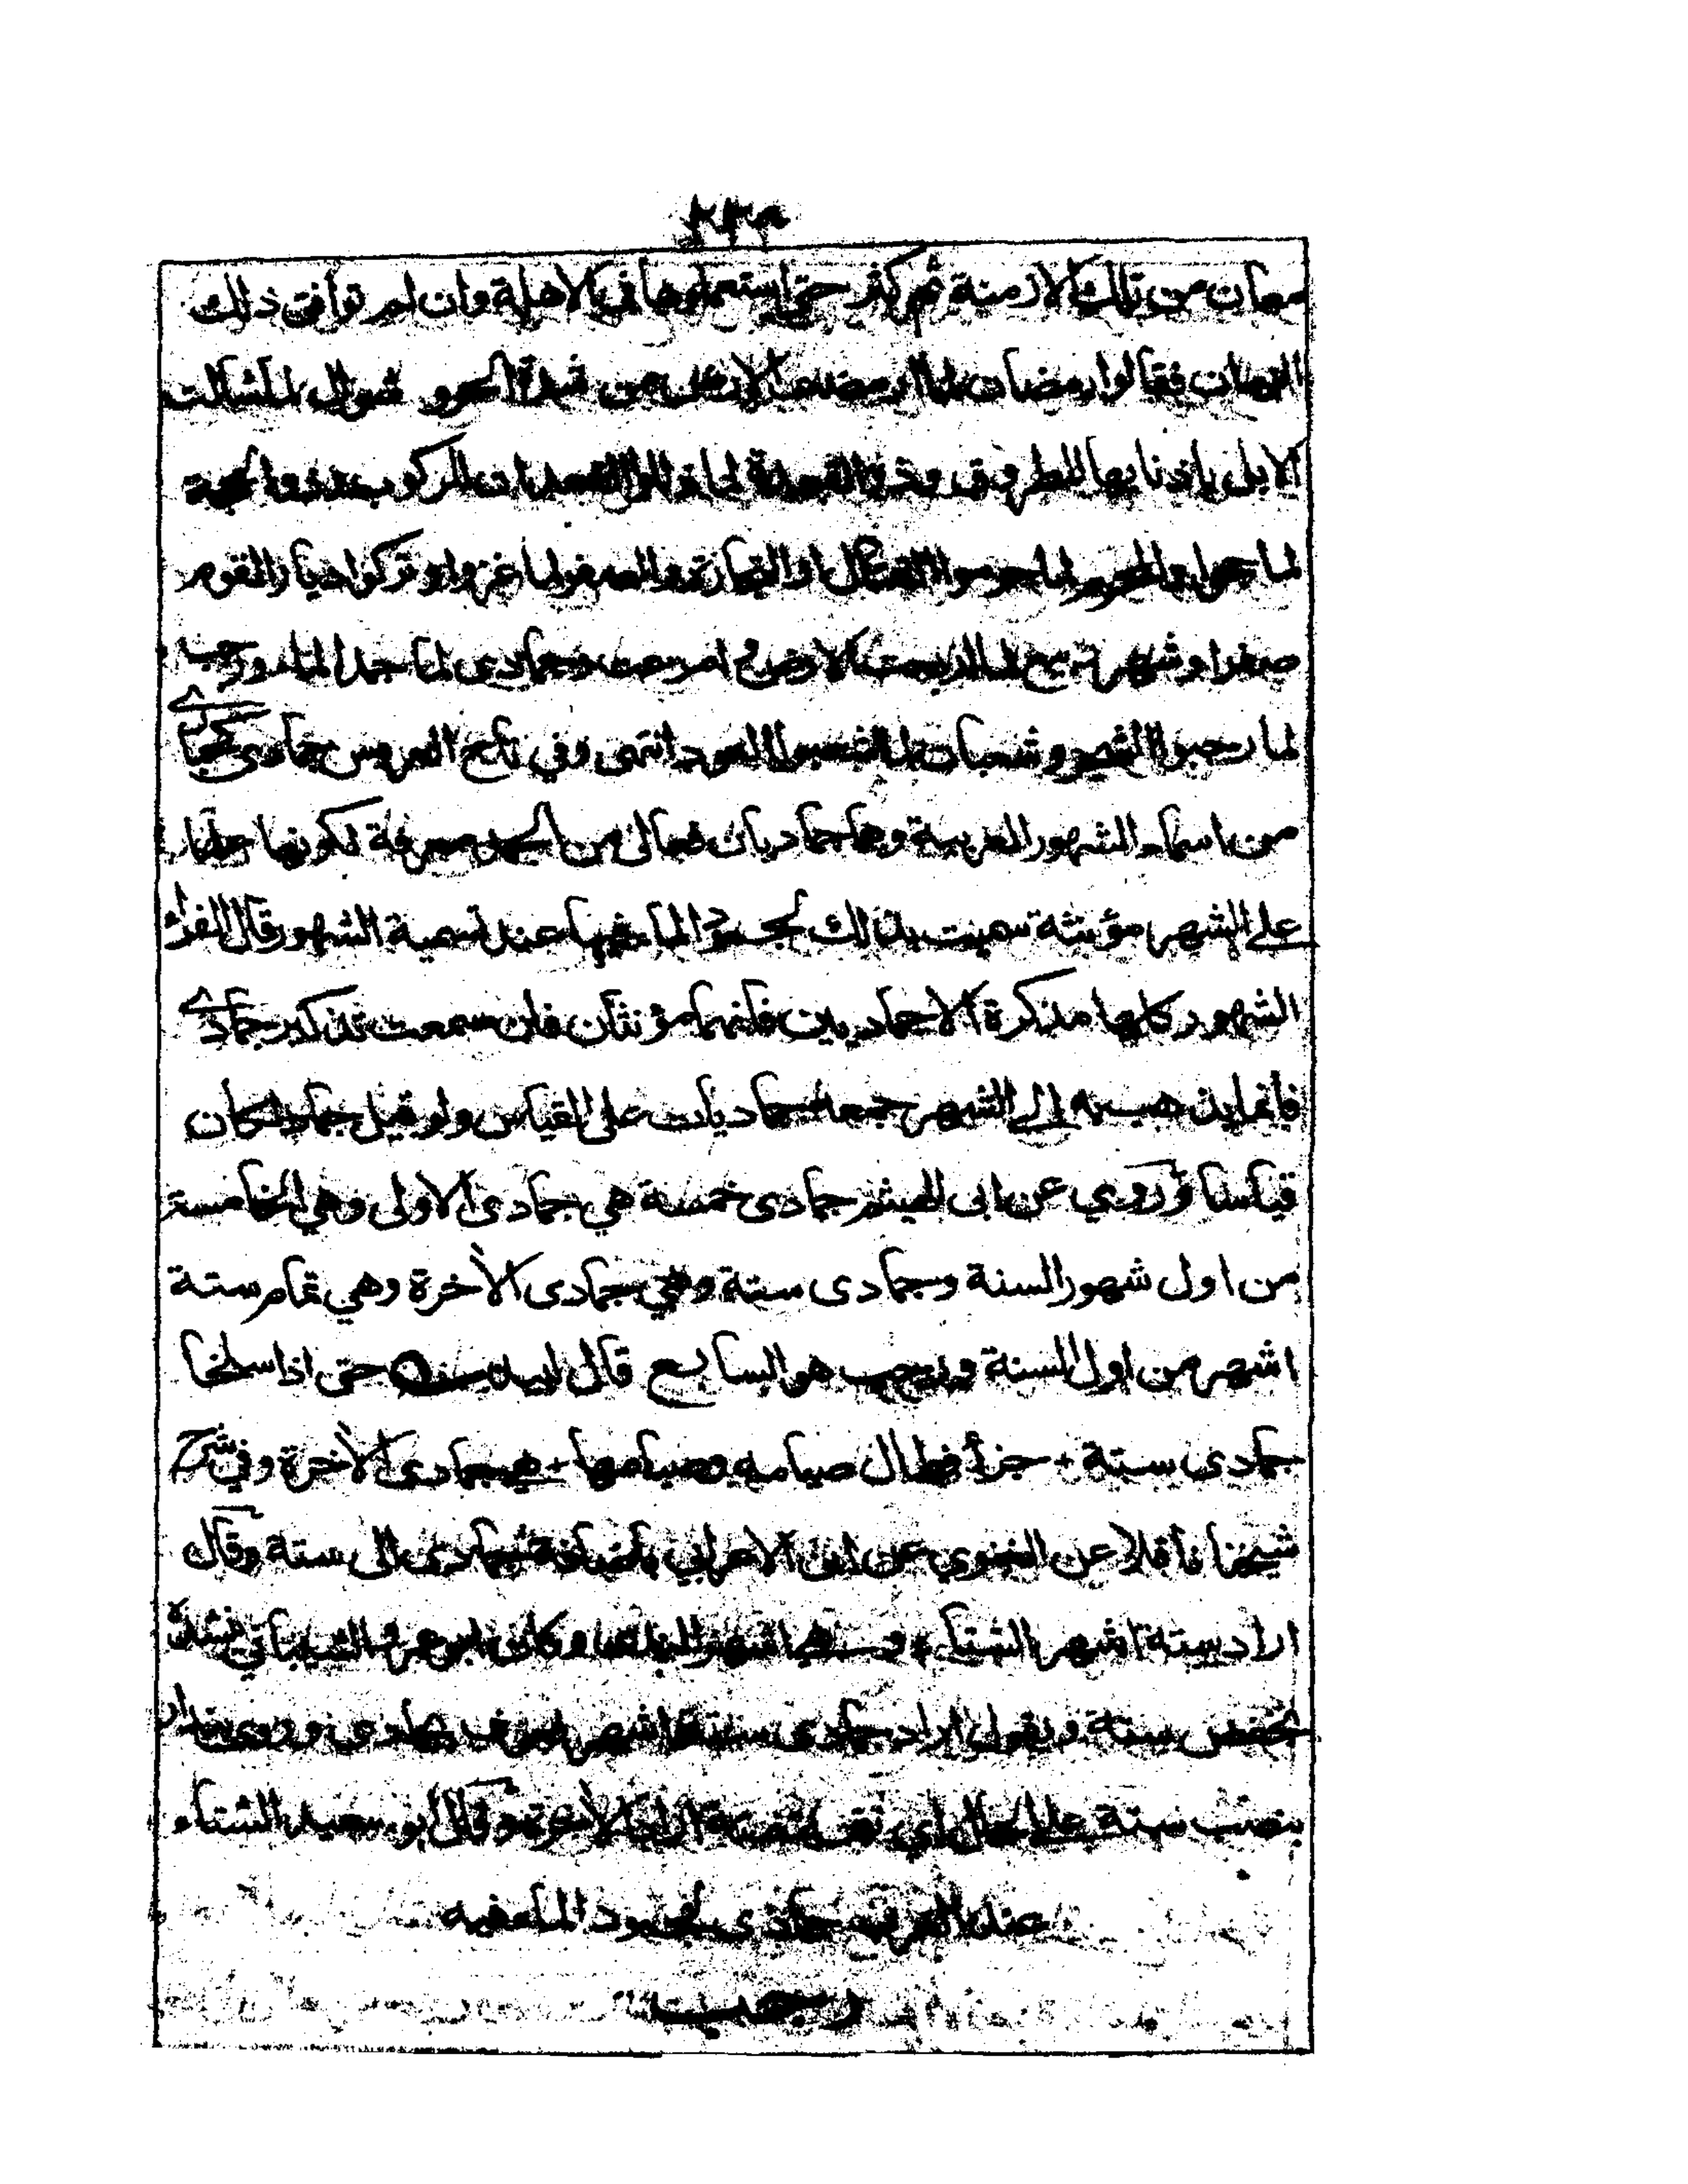 معان من تلك الازمنة ثم كثر حتى استعملوها في الاهلة وان لم توافق ذلك
الزمان فقالوا رمضان لما ارمضت الارض من شدة الحر و شوال لما شالت
الابل باذنابها للطروق وذو القعدة لما ذللوا القعدان للركوب وذو الحجة
لما حجوا والمحرم لما حرموا القتال او التجارة والصفر لما غزوا وتركوا ديار القوم
صفرا وشهر ربيع لما اربعت الارض و امرعت وجمادى لما جمد الماء ورجب
لما رجبوا الشجر وشعبان لما اشعبوا العود انتهى وفي تاج العروس جمادى كحبارے
من اسماء الشهور العربية وهما جماديان فعالى من الجمد معرفة لكونها علما
على الشهر مؤنثة سميت بذلك لجمود الماء فيها عند تسمية الشهور قال الفراء
الشهور كلها مذكرة الا جماديين فانهما مؤنثان فان سمعت تذكير جمادے
فانما يذهب به الى الشهر جمعه جماديات على القياس ولو قيل جماد لكان
قياسا وروي عن ابى الهيثم جمادى خمسة هي جمادى الاولى وهي الخامسة
من اول شهور السنة وجمادى ستة وهي جمادى الأخرة وهي تمام ستة
اشهر من اول السنة ورجب هو السابع قال لبيد حتى اذا سلخا
جمادى ستة + جزأ فطال صيامه وصيامها + هي جمادى الأخرة وفي شرح
شيخنا ناقلا عن الغنوي عن ابن الاعرابي باضافة جمادى الى ستة وقال
اراد ستة اشهر الشتاء و وكان ابو عمرو الشيباني ينشده
بخفض ستة ويقول اراد جمادى ستة اشهر جمادى وروى بندار
بنصب ستة على الحال اي تتمة ستة اراد الأخرة وقال ابو سعيد الشتاء
عند العرب جمادى لجمود الماء فيه
رجب